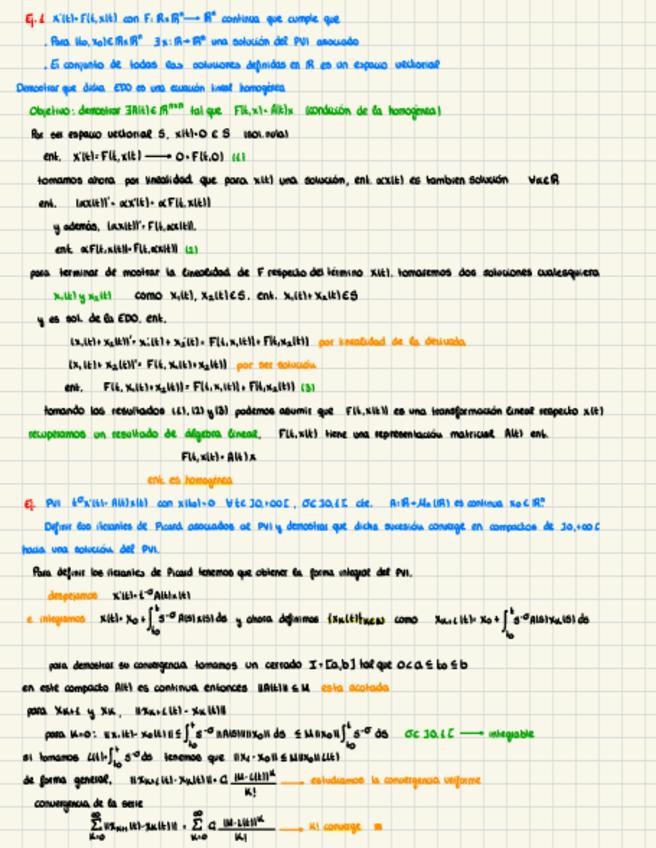 Ej. 1 x'(t)=F(t,x(t)) con F: R×Rⁿ → Rⁿ continua que cumple que
. Para (t₀,x₀)∈R×Rⁿ ∃x: R→Rⁿ una solución del PVI asociado
. El conjunto de todas las soluciones definidas en R es un espacio vectorial
Demostrar que dicha EDO es una ecuación lineal homogénea
Objetivo: demostrar ∃A(t)∈Rⁿˣⁿ tal que F(t,x)=A(t)x (condición de la homogénea)
Por ser espacio vectorial S, x(t)=0 ∈ S (sol. nula)
ent. x'(t)=F(t,x(t)) → 0=F(t,0) (1)
tomamos ahora por linealidad que para x(t) una solución, ent. αx(t) es también solución ∀α∈R
ent. (αx(t))'=αx'(t)=αF(t,x(t))
y además, (αx(t))'=F(t,αx(t)),
ent. αF(t,x(t))=F(t,αx(t)) (2)
para terminar de mostrar la linealidad de F respecto del término x(t), tomaremos dos soluciones cualesquiera
x₁(t) y x₂(t) como x₁(t), x₂(t)∈S, ent. x₁(t)+x₂(t)∈S
y es sol. de la EDO, ent.
(x₁(t)+x₂(t))'=x₁'(t)+x₂'(t)=F(t,x₁(t))+F(t,x₂(t)) por linealidad de la derivada
(x₁(t)+x₂(t))'=F(t,x₁(t)+x₂(t)) por ser solución
ent. F(t,x₁(t)+x₂(t))=F(t,x₁(t))+F(t,x₂(t)) (3)
tomando los resultados (1),(2) y (3) podemos asumir que F(t,x(t)) es una transformación lineal respecto x(t)
recuperamos un resultado de álgebra lineal, F(t,x(t)) tiene una representación matricial A(t) ent.
F(t,x(t))=A(t)x
ent. es homogénea
Ej. PVI t^σ x'(t)=A(t)x(t) con x(t₀)=0 ∀t∈]0,+∞[, σ∈]0,1[ cte. A:R→Mₙ(R) es continua x₀∈Rⁿ
Definir los iterantes de Picard asociados al PVI y demostrar que dicha sucesión converge en compactos de ]0,+∞[
hacia una solución del PVI.
Para definir los iterantes de Picard tenemos que obtener la forma integral del PVI.
despejamos x'(t)=t^-σ A(t)x(t)
e integramos x(t)=x₀+∫_{t₀}^t s^-σ A(s)x(s)ds y ahora definimos {x_K(t)}_{K∈N} como x_{K+1}(t)=x₀+∫_{t₀}^t s^-σ A(s)x_K(s)ds
para demostrar su convergencia tomamos un cerrado I=[a,b] tal que 0<a≤t₀≤b
en este compacto A(t) es continua entonces ||A(t)||≤M esta acotada
para x_{K+1} y x_K, ||x_{K+1}(t)-x_K(t)||
para K=0: ||x₁(t)-x₀(t)||≤∫_{t₀}^t s^-σ ||A(s)||||x₀||ds ≤ M||x₀||∫_{t₀}^t s^-σ ds σ∈]0,1[ → integrable
si tomamos L(t)=∫_{t₀}^t s^-σ ds tenemos que ||x₁-x₀||≤M||x₀||L(t)
de forma general, ||x_{K+1}(t)-x_K(t)||=C |M·L(t)|^K / K! → estudiamos la convergencia uniforme
convergencia de la serie
∑_{K=0}^∞ ||x_{K+1}(t)-x_K(t)|| = ∑_{K=0}^∞ C |M·L(t)|^K / K! → K! converge